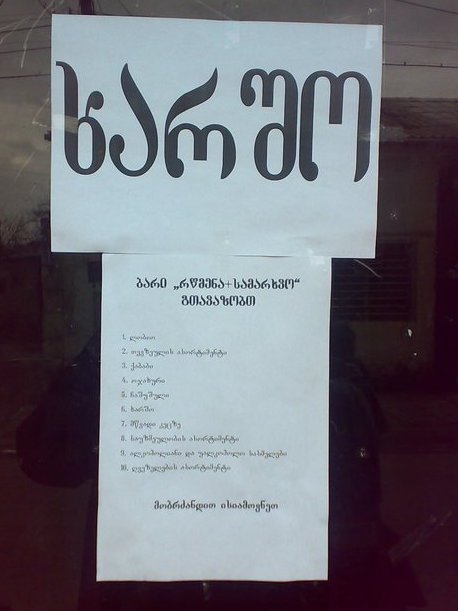 ხარშო
ბარი „რწმენა+სამარხვო“
გთავაზობთ
1. ლობიო
2. თევზეულის ასორტიმენტი
3. ქაბაბი
4. ოჯახური
5. ჩაშუშული
6. ხარშო
7. მწვადი კეცზე
8. საუზმეულობის ასორტიმენტი
9. ალკოჰოლიანი და უალკოჰოლო სასმელები
10. ღვეზელების ასორტიმენტი
მობრძანდით ისიამოვნეთ